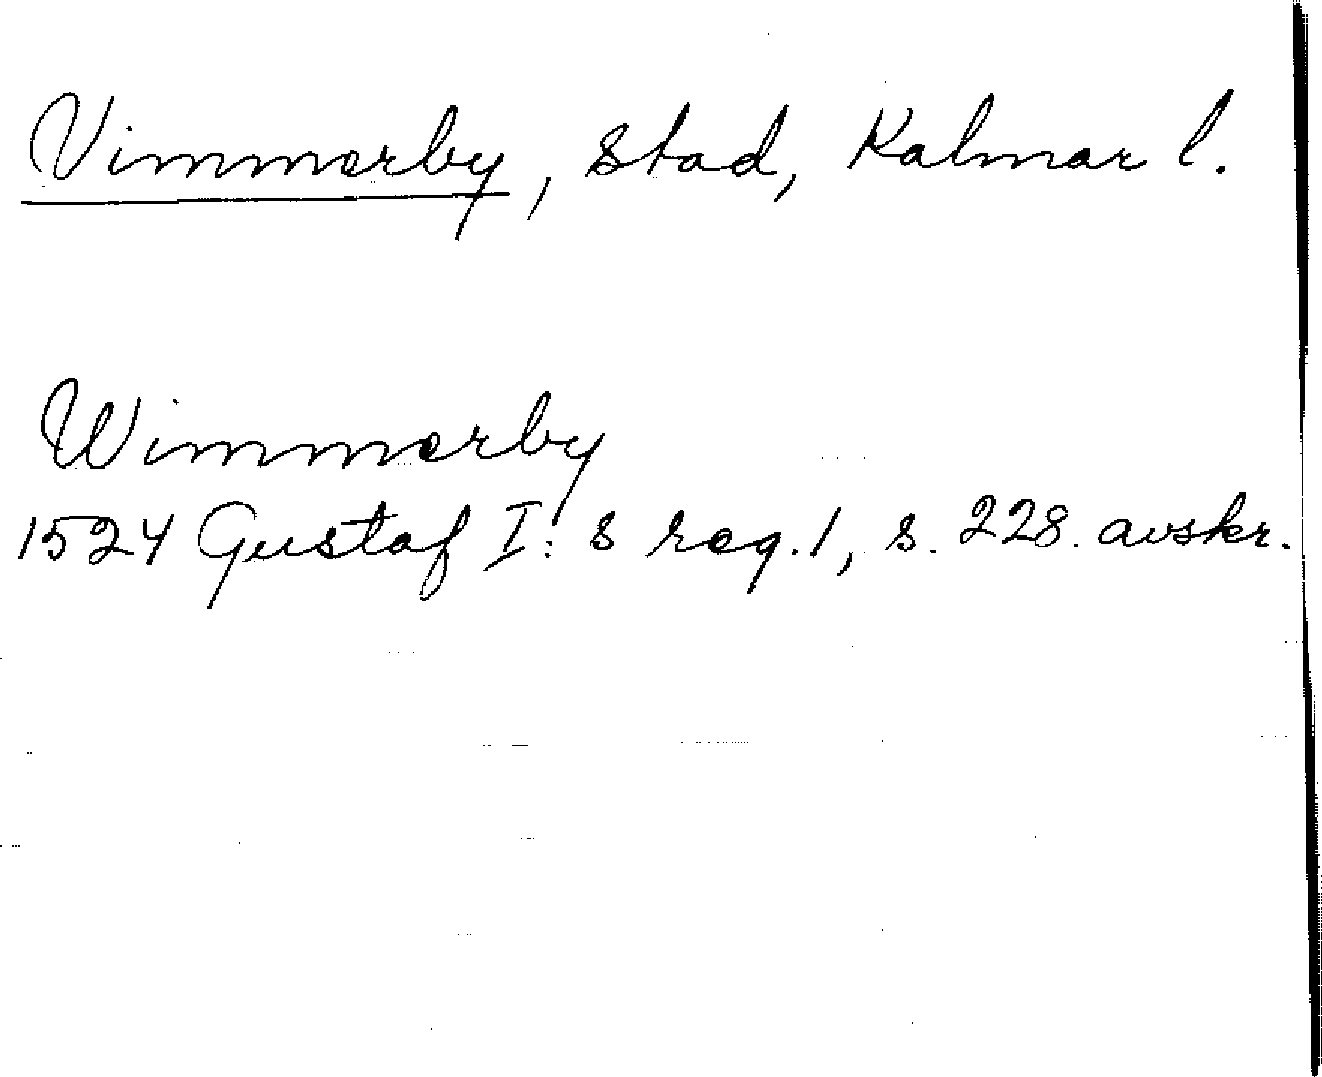 Vimmerby, stad, Kalmar l.
Wimmerby
1524 Gustaf I:s reg. 1, s. 228. avskr.